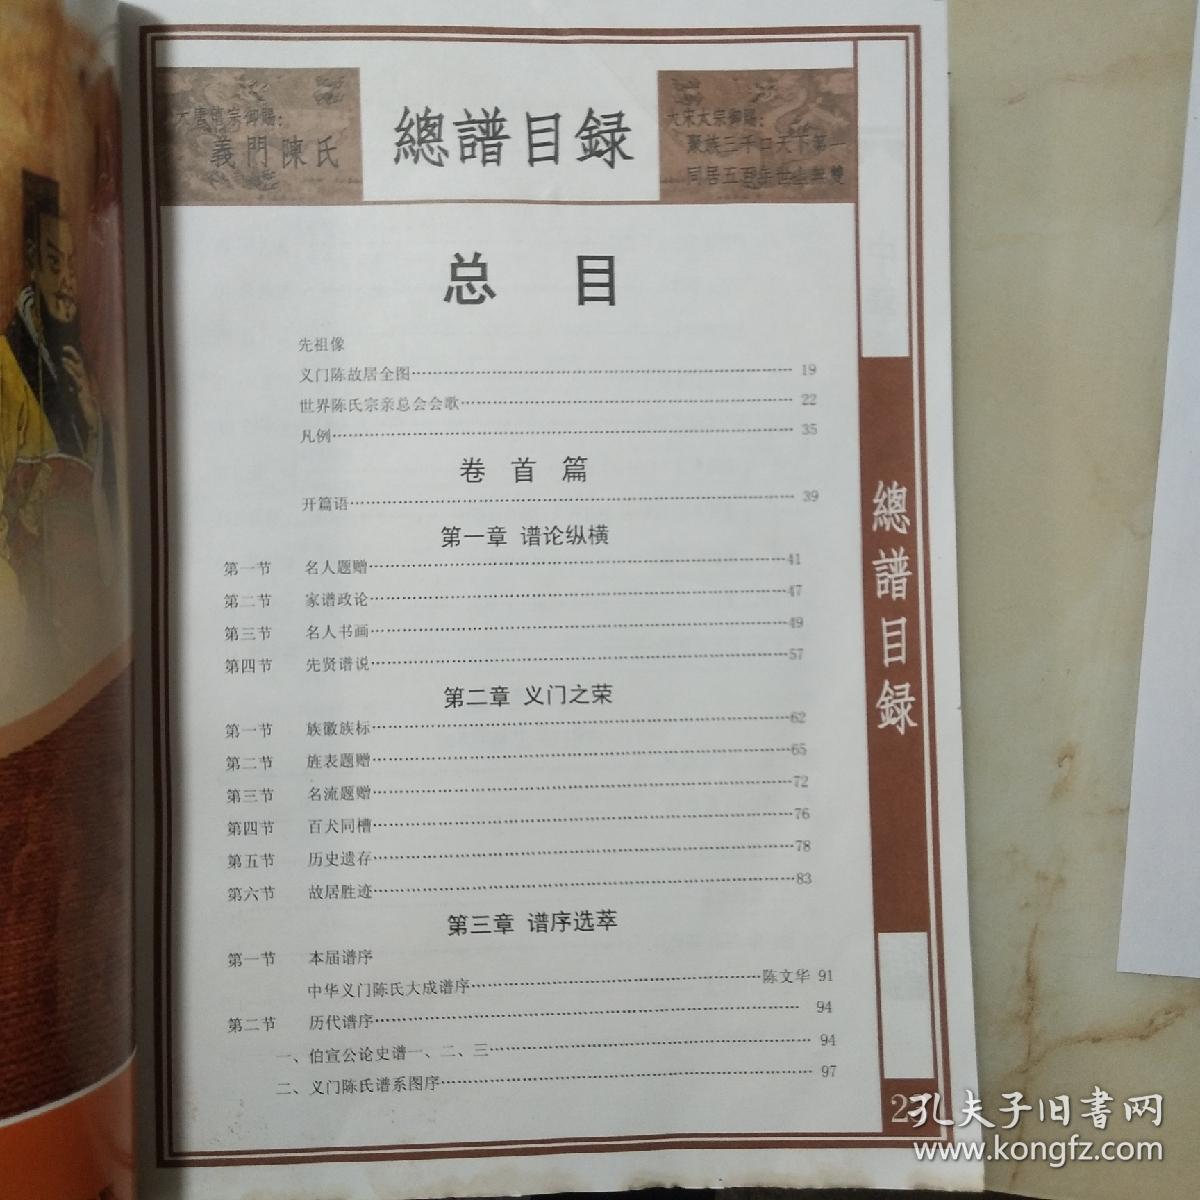 大唐僖宗御賜：
義門陳氏
總譜目録
大宋太宗御賜：
聚族三千口天下第一
同居五百年世上無雙
总 目
先祖像
义门陈故居全图 19
世界陈氏宗亲总会会歌 22
凡例 35
卷 首 篇
开篇语 39
第一章 谱论纵横
第一节 名人题赠 41
第二节 家谱政论 47
第三节 名人书画 49
第四节 先贤谱说 57
第二章 义门之荣
第一节 族徽族标 62
第二节 旌表题赠 65
第三节 名流题赠 72
第四节 百犬同槽 76
第五节 历史遗存 78
第六节 故居胜迹 83
第三章 谱序选萃
第一节 本届谱序
中华义门陈氏大成谱序 陈文华 91
第二节 历代谱序 94
一、伯宣公论史谱一、二、三 94
二、义门陈氏谱系图序 97
總譜目録
孔夫子旧书网
www.kongfz.com